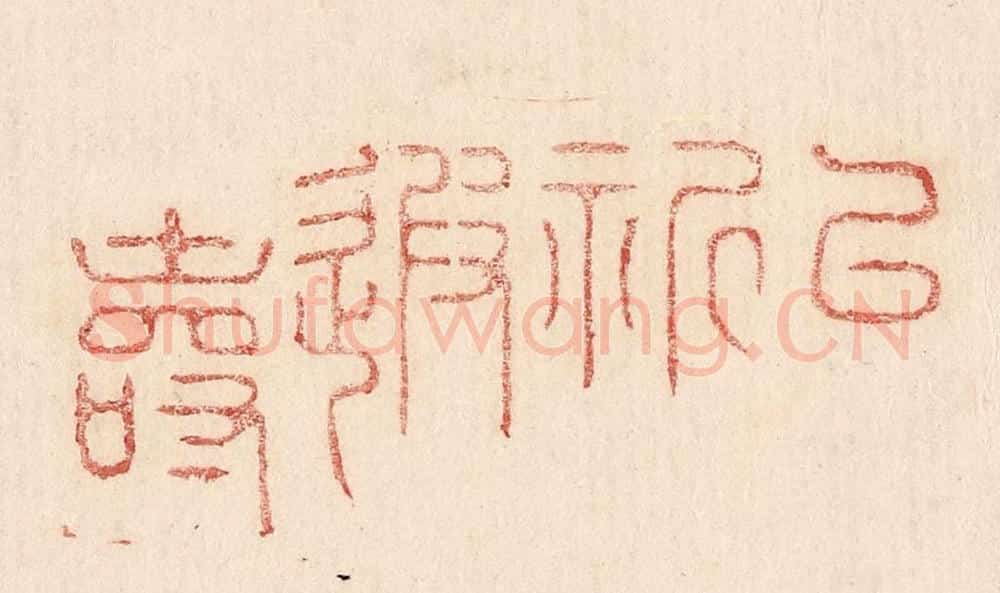 㠯祈遐壽
Shufawang.CN